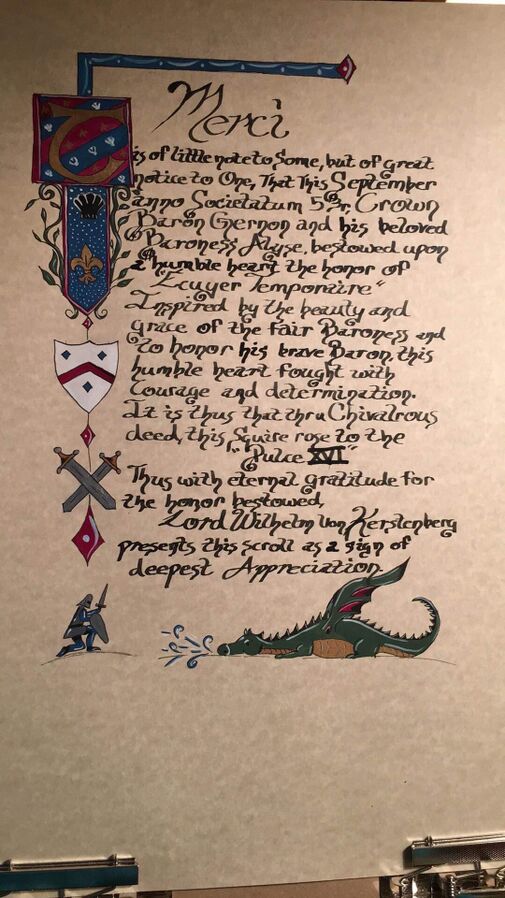 Merci
is of little note to Some, but of great
notice to One, That This September
anno Societatum 53, Crown
Baron Gernon and his beloved
Baroness Alyse, bestowed upon
a humble heart the honor of
"Ecuyer Temporaire"
Inspired by the beauty and
grace of the fair Baroness and
to honor his brave Baron, this
humble heart fought with
Courage and determination.
It is thus that thru Chivalrous
deed, this Squire rose to the
"Pulce XVI"
Thus with eternal gratitude for
the honor bestowed,
Lord Wilhelm Von Kerstenberg
presents this scroll as a sign of
deepest Appreciation.